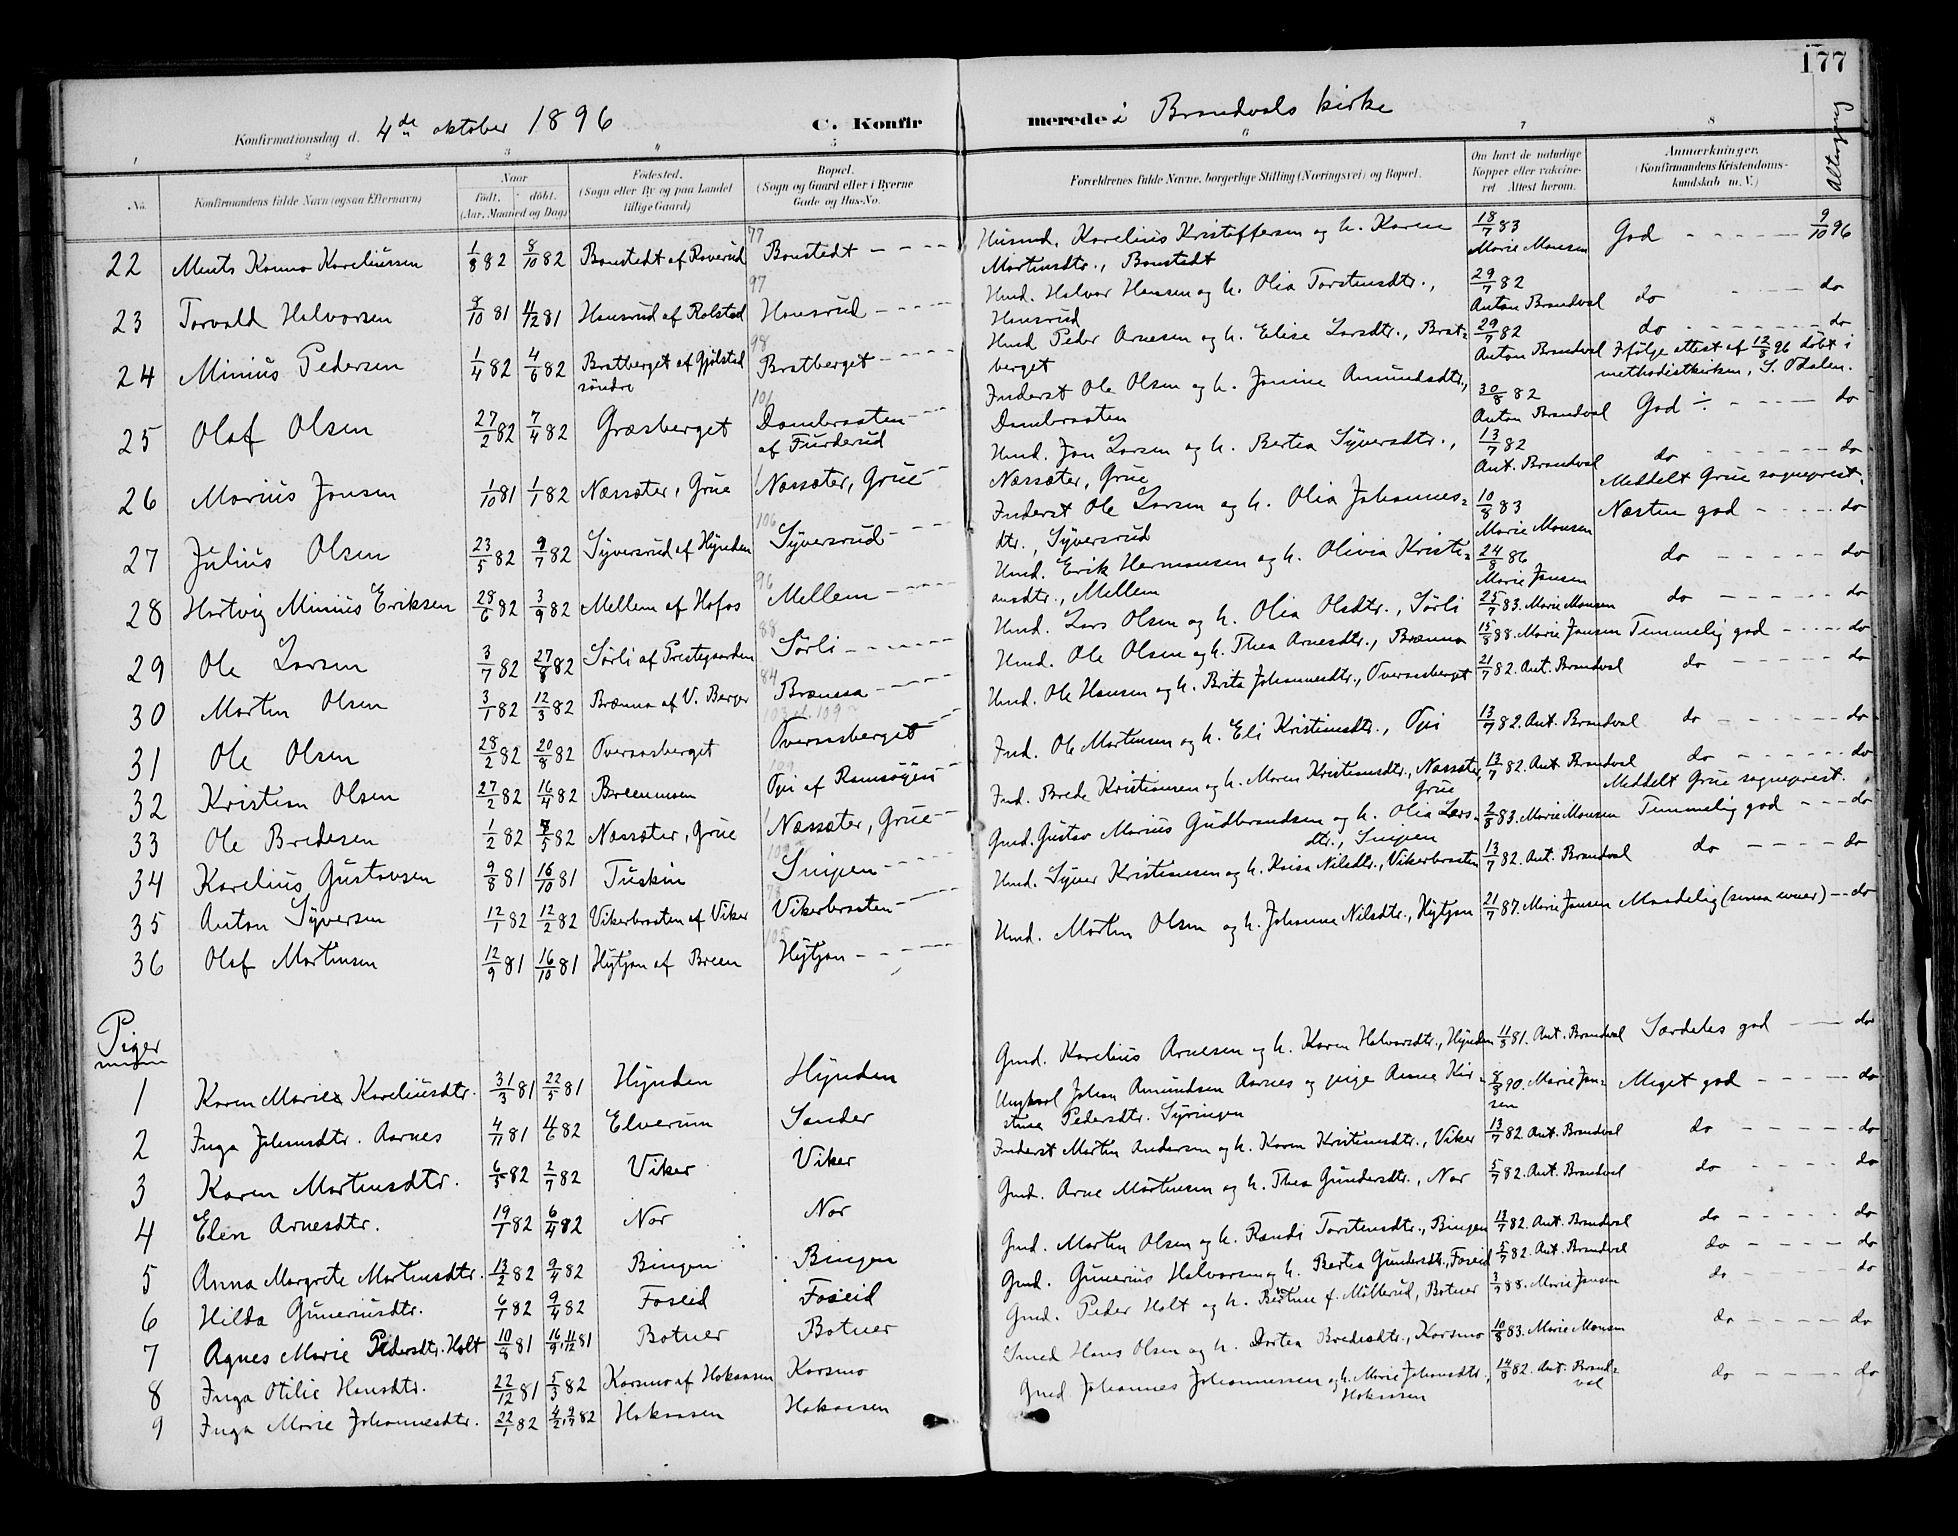 177
Konfirmationsdag d. 4de oktober 1896 C. Konfirmerede i Brandvals kirke
1 2 3 4 5 6 7 8
No. Konfirmandens fulde Navn (ogsaa Efternavn) Naar født. døbt. (Aar, Maaned og Dag) Fødested. (Sogn eller By og paa Landet tillige Gaard) Bopæl. (Sogn og Gaard eller i Byerne Gade og Hus-No. Forældrenes fulde Navne, borgerlige Stilling (Næringsvei) og Bopæl. Om havt de naturlige Kopper eller vakcineret. Attest herom. Anmærkninger. (Konfirmandens Kristendomskundskab m. V.) Altergang
22 Karelius­sen 1/8 82 8/10 82 Bonstedt af Roverud 77 Bonstedt Husmd. Karelius Kristoffersen og h. Karen Martinsdtr., Bonstedt 18/7 83 Marie Monsen God 9/10 96
23 Torvald Halvorsen 9/10 81 4/12 81 Hansrud af Rolstad 97 Hansrud Hmd. Halvor Hansen og h. Olia Torstensdtr., Hansrud 29/7 82 Anton Brandval do do
24 Minius Pedersen 1/4 82 4/6 82 Bratberget af Gjølstad søndre 98 Bratberget Hmd Peder Arnesen og h. Elise Larsdtr., Bratberget 29/7 82 Anton Brandval do do
Ifølge attest af 12/8 96 døbt i methodistkirken, S. Odalen.
25 Olaf Olsen 27/2 82 7/4 82 Græsberget 101 Dambraaten af Furderud Inderst Ole Olsen og h. Janine Amundsdtr., Dambraaten 30/8 82 Anton Brandval God ÷ do
26 Marius Jonsen 1/10 81 1/1 82 Næssæter, Grue Næssæter, Grue Hmd. Jon Larsen og h. Bertea Syversdtr., Næssæter, Grue 13/7 82 Ant. Brandval do do
Meddelt Grue sogneprest.
27 Julius Olsen 23/5 82 9/7 82 Syversrud af Hynden 106 Syversrud Inderst Ole Larsen og h. Olia Johannesdtr., Syversrud 10/8 83 Marie Monsen Næsten god do
28 Hartvig Minius Eriksen 28/6 82 3/9 82 Mellem af Hofos 96 Mellem Hmd. Erik Hermansen og h. Olivia Kristiansdtr., Mellem 24/8 86 Marie Jansen do do
29 Ole Larsen 3/7 82 27/8 82 Sørli af Prestegaarden 88 Sørli Hmd. Lars Olsen og h. Olia Olsdtr., Sørli 25/7 83. Marie Monsen do do
30 Martin Olsen 3/1 82 12/3 82 Brænna af V. Berger 84 Brænna Hmd. Ole Olsen og h. Thea Arnesdtr., Brænna 15/8 88. Marie Jansen Temmelig god do
31 Ole Olsen 28/2 82 20/8 82 Overaasberget Overaasberget Hmd. Ole Hansen og h. Brita Johannesdtr., Overaasberget 21/7 82. Ant. Brandval do do
32 Kristian Olsen 27/2 82 16/4 82 Breenmoen 109 Opi af Ramsøgen Ind. Ole Martinsen og h. Eli Kristiansdtr., Opi 13/7 82. Ant. Brandval do do
33 Ole Bredesen 1/2 82 7/5 82 Næssæter, Grue Næssæter, Grue Ind. Brede Kristiansen og h. Maren Kristiansdtr., Næssæter, Grue 13/7 82. Ant Brandval do do
Meddelt Grue sogneprest.
34 Karelius Gustavsen 9/8 81 16/10 81 Tuskin Snipen Gmd. Gustav Marius Gudbrandsen og h. Olia Larsdtr., Snipen 2/8 83. Marie Monsen Temmelig god do
35 Anton Syversen 12/1 82 12/2 82 Vikerbraaten af Viker 78 Vikerbraaten Hmd. Syver Kristiansen og h. Kaisa Nilsdtr., Vikerbraaten 13/7 82. Ant. Brandval do do
36 Olaf Martinsen 12/9 81 16/10 81 Hytjan af Breen 105 Hytjan Hmd. Martin Olsen og h. Johanne Nilsdtr., Hytjan 21/7 87. Marie Jansen Maadelig do
Piger
1 Karen Marie Kareliusdtr. 31/3 81 22/5 81 Hynden Hynden Gmd. Karelius Arnesen og h. Karen Halvorsdtr., Hynden 11/8 81. Ant. Brandval Særdeles god do
2 Inga Johansdtr. Aarnes 4/11 81 4/6 82 Elverum Sander Ungkarl Johan Amundsen Aarnes og pige Anne Kirstine Pedersdtr. Syringen 8/8 90. Marie Jansen Meget god do
3 Karen Martinsdtr. 6/5 82 2/7 82 Viker Viker Inderst Martin Andersen og h. Karen Kristiansdtr., Viker 13/7 82. Ant. Brandval do do
4 Elen Arnesdtr. 19/1 82 6/4 82 Nor Nor Gmd. Arne Martinsen og h. Thea Gundersdtr., Nor 5/7 82. Ant. Brandval do do
5 Anna Margrete Martinsdtr. 13/2 82 9/4 82 Bingen Bingen Gmd. Martin Olsen og h. Randi Torstensdtr., Bingen 13/7 82. Ant. Brandval do do
6 Hilda Gunerius­dtr. 6/1 82 9/4 82 Foseid Foseid Gmd. Gunerius Halvorsen og h. Bertea Gundersdt., Foseid 5/7 82. Ant. Brandval do do
7 Agnes Marie Pedersdtr. Holt 10/8 81 16/9, 11/12 81 Botner Botner Gmd. Peder Holt og h. f. Møllerud, Botner 3/7 88. Marie Jansen do do
8 Inga Otilie Hansdtr. 22/12 81 5/3 82 Korsmo af Hokaasen Korsmo Smed Hans Olsen og h. Dortea Bredesdtr., Korsmo 10/8 83. Marie Monsen do do
9 Inga Marie Johannesdtr. 22/1 82 4/2, 9/7 82 Hokaasen Hokaasen Gmd Johannes Johannessen og h. Marie Johansdtr., Hokaasen 14/8 82. Ant. Brandval do do